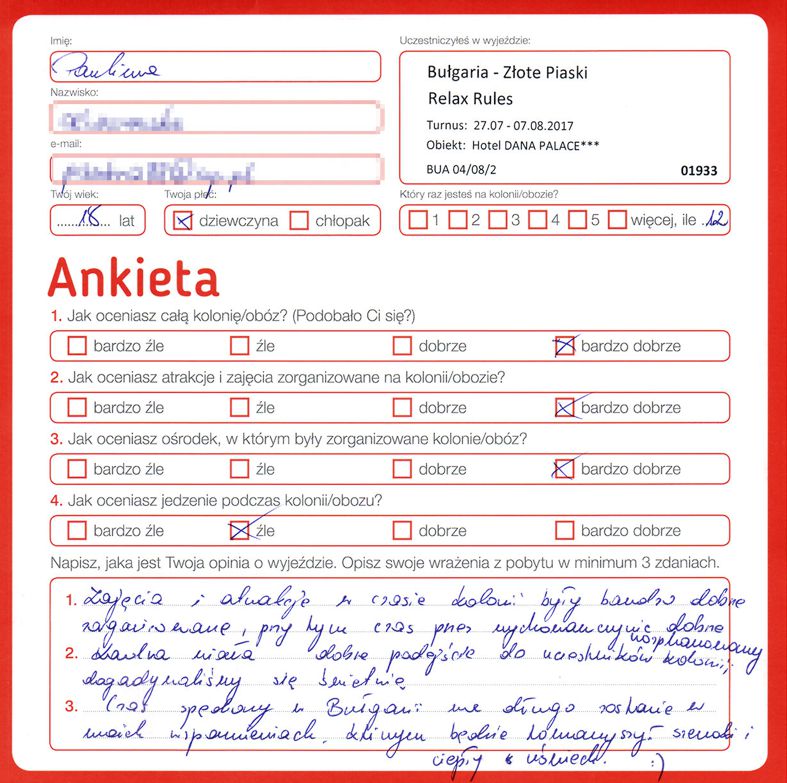 Imię:
Uczestniczyłeś w wyjeździe:
Paulina
Bułgaria - Złote Piaski
Relax Rules
Turnus: 27.07 - 07.08.2017
Obiekt: Hotel DANA PALACE***
BUA 04/08/2
01933
Nazwisko:
e-mail:
Twój wiek:
Twoja płeć:
Który raz jesteś na kolonii/obozie?
18 lat
dziewczyna
chłopak
1 2 3 4 5 więcej, ile 12
Ankieta
1. Jak oceniasz całą kolonię/obóz? (Podobało Ci się?)
bardzo źle źle dobrze bardzo dobrze
2. Jak oceniasz atrakcje i zajęcia zorganizowane na kolonii/obozie?
bardzo źle źle dobrze bardzo dobrze
3. Jak oceniasz ośrodek, w którym były zorganizowane kolonie/obóz?
bardzo źle źle dobrze bardzo dobrze
4. Jak oceniasz jedzenie podczas kolonii/obozu?
bardzo źle źle dobrze bardzo dobrze
Napisz, jaka jest Twoja opinia o wyjeździe. Opisz swoje wrażenia z pobytu w minimum 3 zdaniach.
1. Zajęcia i atrakcje w czasie kolonii były bardzo dobrze
zorganizowane, przy tym czas przez wychowawczynie dobrze
rozplanowany
2. Kadra miała dobre podejście do uczestników kolonii,
dogadywaliśmy się świetnie
3. Czas spędzony w Bułgarii na długo zostanie w
moich wspomnieniach, którym będzie towarzyszył szeroki i
ciepły uśmiech. :)